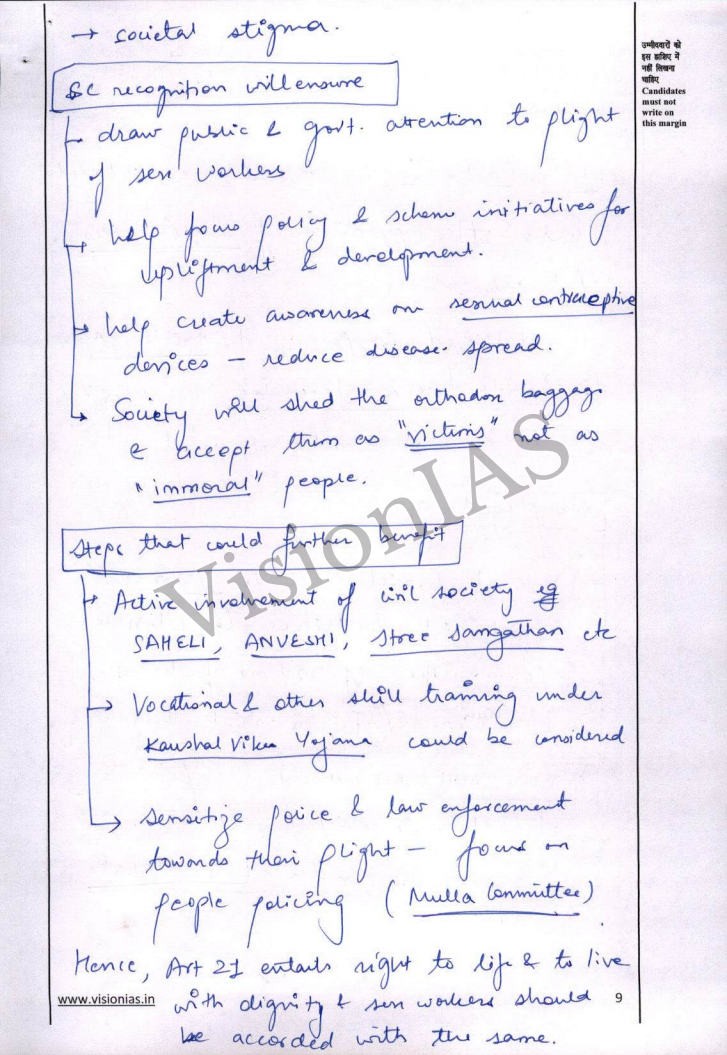 → societal stigma.
SC recognition will ensure
- draw public & govt. attention to plight
of sex workers
→ help focus policy & scheme initiatives for
upliftment & development.
→ help create awareness on sexual contraceptive
devices – reduce disease spread.
→ Society will shed the orthodox baggage
& accept them as "victims" not as
"immoral" people.
Steps that could further benefit
→ Active involvement of civil society eg
SAHELI, ANVESHI, Stree Sangathan etc
→ Vocational & other skill training under
Kaushal Vikas Yojana could be considered
→ sensitize police & law enforcement
towards their plight – focus on
people policing (Mulla Committee)
Hence, Art 21 entails right to life & to live
with dignity & sex workers should
be accorded with the same.
उम्मीदवारों को
इस हाशिए में
नहीं लिखना
चाहिए
Candidates
must not
write on
this margin
VisionIAS
www.visionias.in
9